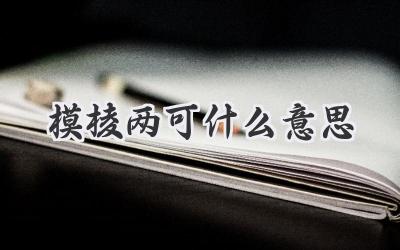 摸棱两可什么意思